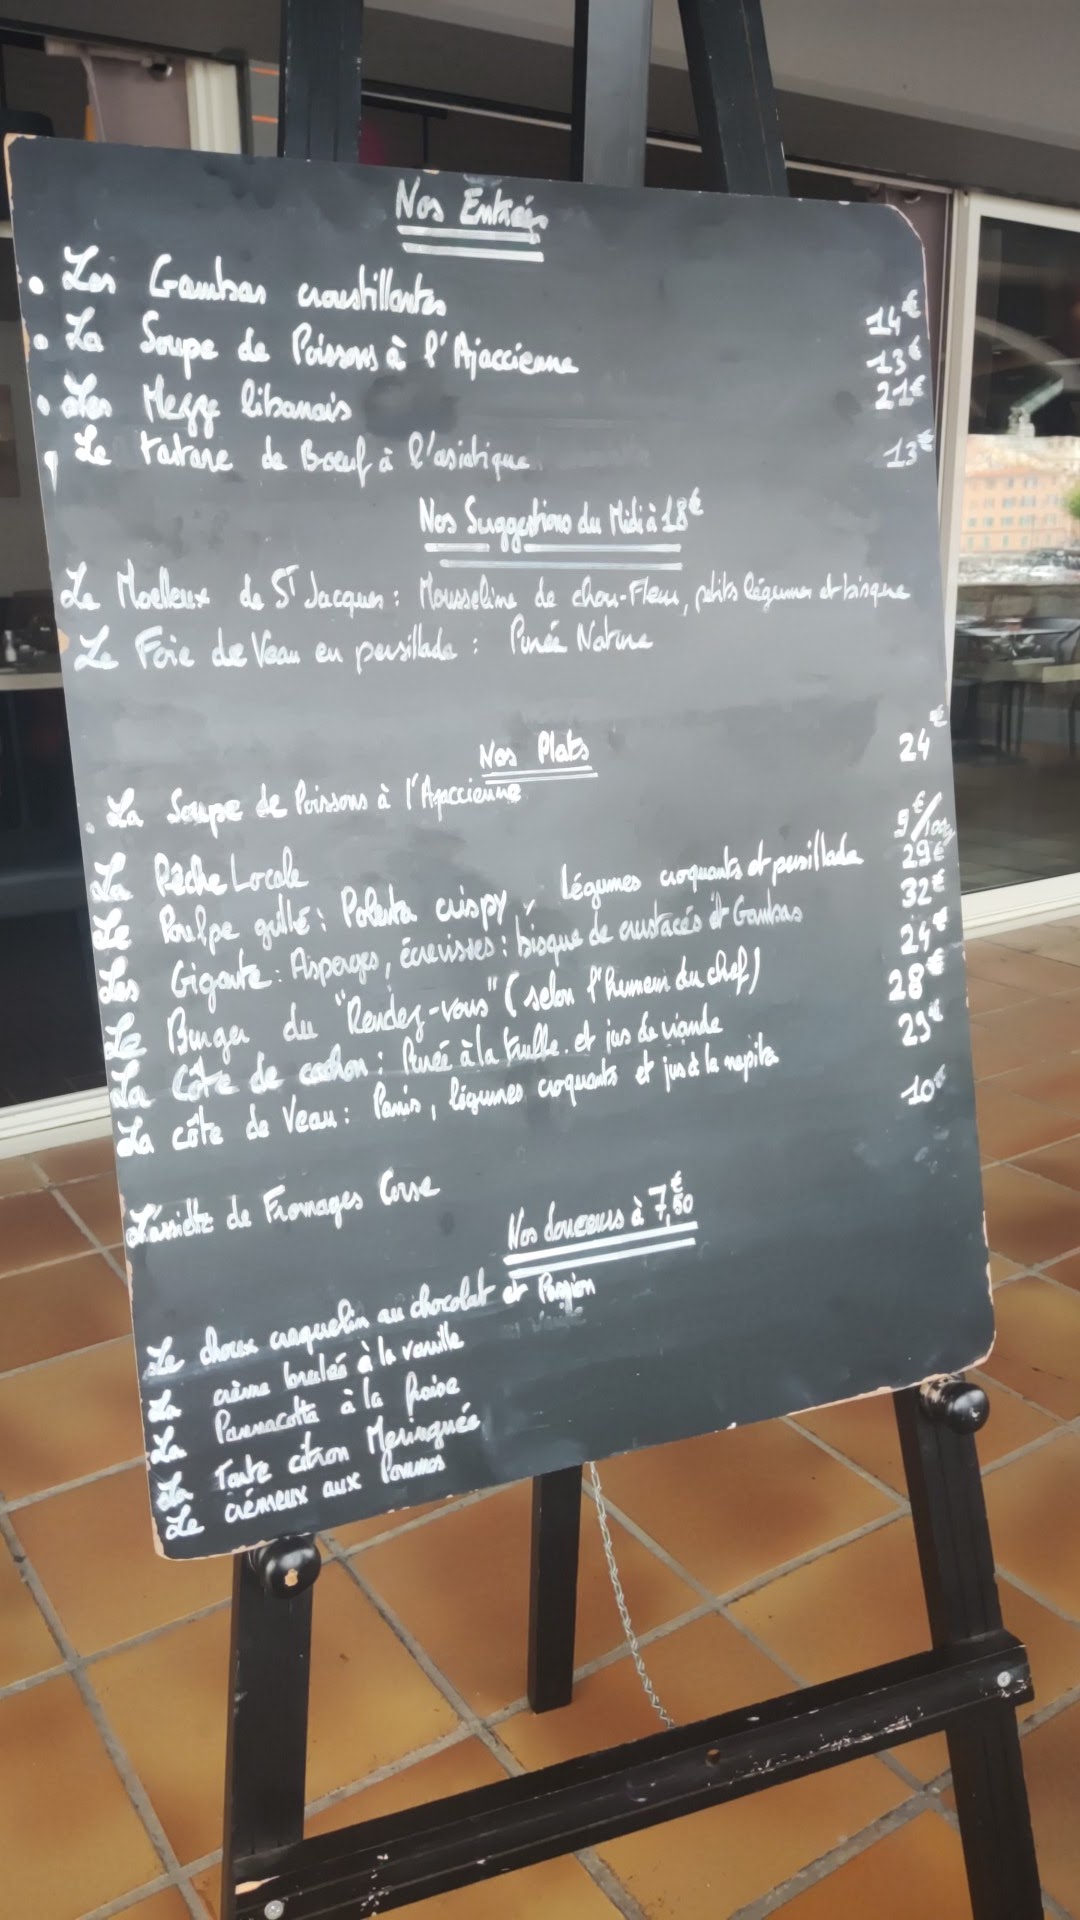 Nos Entrées
Les Gambas croustillantes 14€
La Soupe de Poissons à l'Ajaccienne 13€
Les Mezze libanais 21€
Le tartare de Boeuf à l'asiatique 13€
Nos Suggestions du Midi à 18€
Le Moelleux de ST Jacques : Mousseline de chou-Fleur, petits légumes et bisque
Le Foie de Veau en persillade : Purée Nature
Nos Plats
La Soupe de Poissons à l'Ajaccienne 24€
La Pêche Locale 9€/100g
Le Poulpe grillé : Polenta crispy, Légumes croquants et persillade 29€
Les Gigante : Asperges, écrevisses : bisque de crustacés et Gambas 32€
Le Burger du "Rendez-vous" (selon l'humeur du chef) 24€
La Côte de cochon : Purée à la truffe et jus de viande 28€
La côte de Veau : Panis, légumes croquants et jus à la nepita 29€
L'assiette de Fromages Corse 10€
Nos douceurs à 7,50€
Le choux craquelin au chocolat et Passion
La crème brulée à la vanille
La Pannacotta à la fraise
La Tarte citron Meringuée
Le crémeux aux Pommes